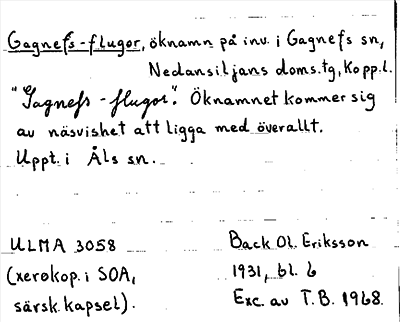 Gagnefs-flugor, öknamn på inv. i Gagnefs sn,
Nedansiljans doms.tg, Kopp.l.
"Gagnefs-flugor". Öknamnet kommer sig
av näsvishet att ligga med överallt.
Uppt. i Åls sn.
ULMA 3058
(xerokop. i SOA,
särsk. kapsel).
Back Ol. Eriksson
1931, bl. 6
Exc. av T.B. 1968.